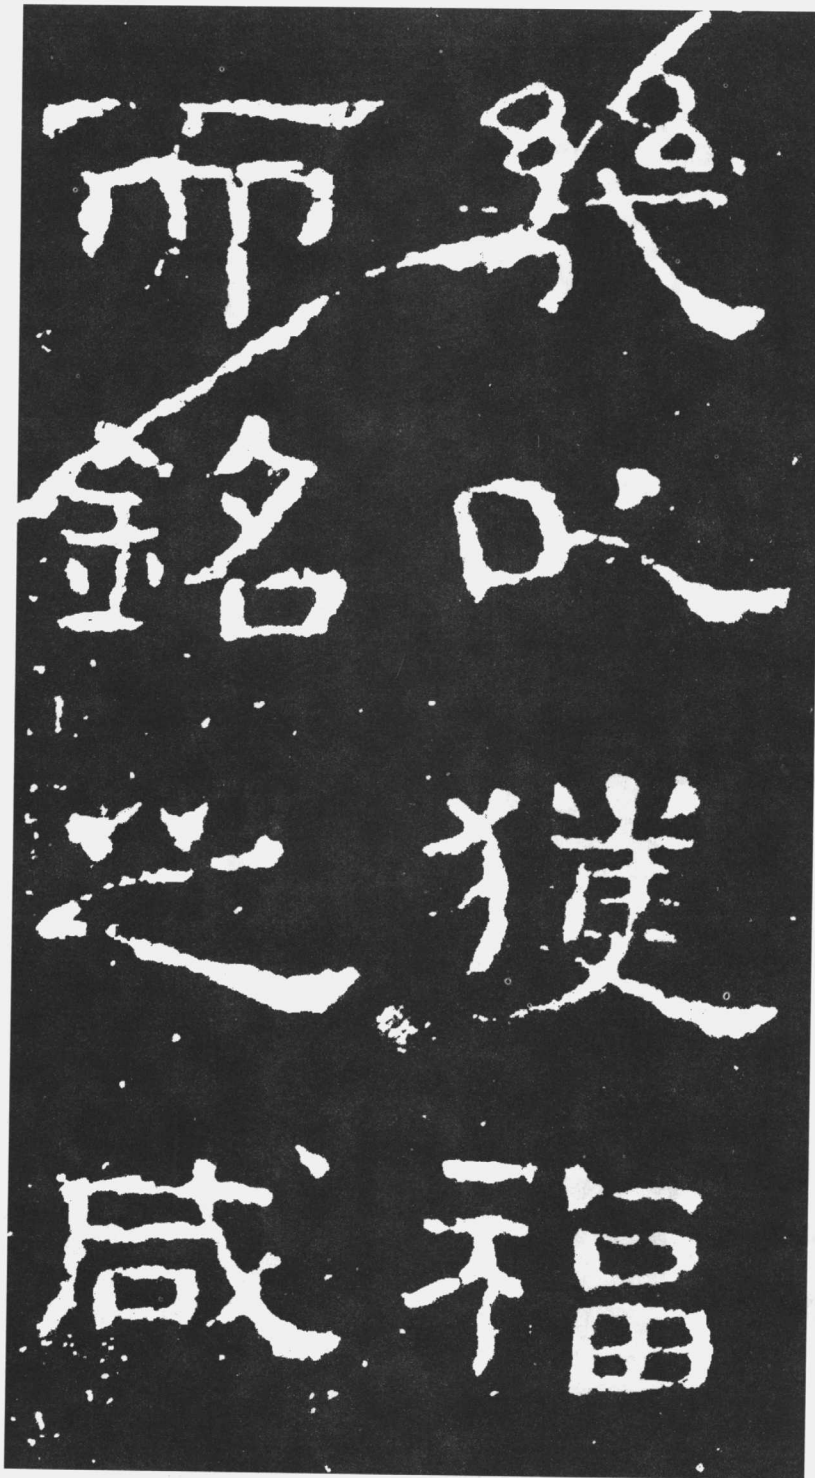 幾以獲福
而銘之咸